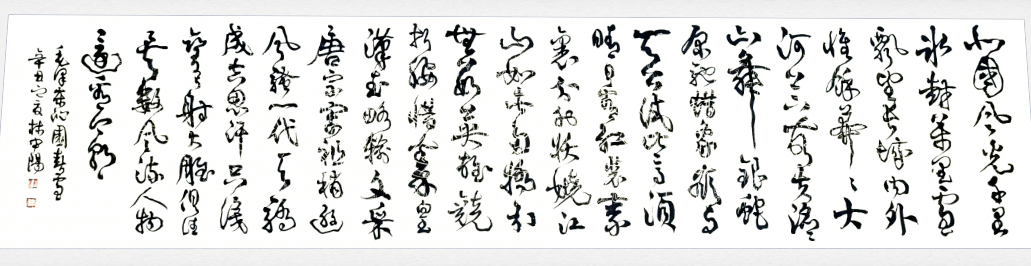 北國風光千里
冰封萬里雪
飄望長城內外
惟餘莽〻大
河上下頓失滔〻
山舞銀蛇
原馳蠟象欲與
天公試比高須
晴日看紅裝素
裹分外妖嬈江
山如此多嬌引
無數英雄競
折腰惜秦皇
漢武略輸文采
唐宗宋祖稍遜
風騷一代天驕
成吉思汗只識
彎弓射大雕俱往
矣數風流人物
還看今朝
毛澤東沁園春雪
辛丑之夏林中陽